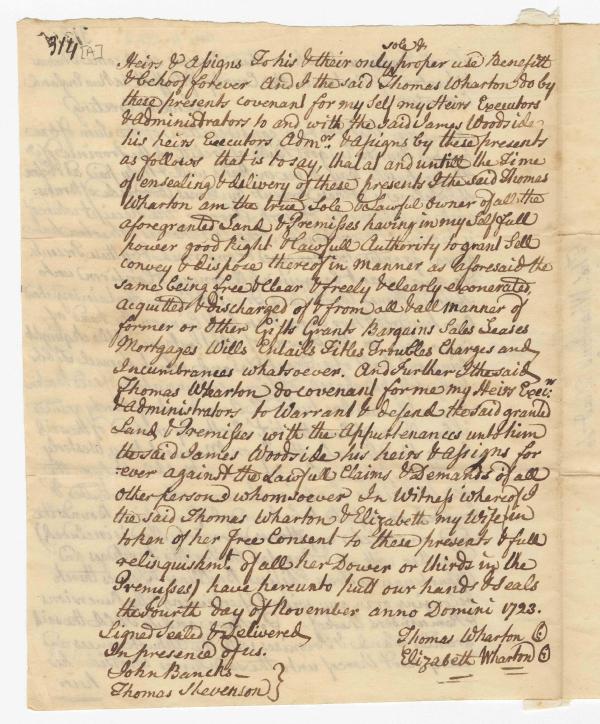 314 [A]
sole &
Heirs & Assigns To his & their only proper use Benefitt
& behoof forever And I the said Thomas Wharton do by
these presents covenant for my self my Heirs Executors
& Administrators to and with the said James Woodside
his heirs Executors Admors. & assigns by these presents
as follows that is to say, that at and untill the Time
of ensealing & delivery of these presents I the said Thomas
Wharton am the true Sole & Lawful owner of all the
aforegranted Land & Premisses having in my Self full
power good Right & Lawfull Authority to grant Sell
convey & dispose thereof in manner as aforesaid the
same being free & Clear & freely & clearly exonerated,
acquitted & discharged of & from all & all manner of
former or other Gifts Grants Bargains Sales Leases
Mortgages Wills Entails Titles Troubles Charges and
Incumbrances whatsoever. And Further I the said
Thomas Wharton do covenant for me my Heirs Execrs:
& Administrators to Warrant & defend the said granted
Land & Premisses with the Appurtenances unto him
the said James Woodside his heirs & Assigns for
ever against the Lawfull Claims & Demands of all
other person whomsoever In Witness whereof I
the said Thomas Wharton & Elizabeth my Wife in
token of her Free Consent to these presents & full
relinquishmt. of all her Dower or thirds in the
Premisses) have hereunto sett our hands & Seals
the Fourth day of November anno Domini 1723.
Signed Sealed & Delivered Thomas Wharton
In presence of us. Elizabeth Wharton
John Bancks
Thomas Stevenson }